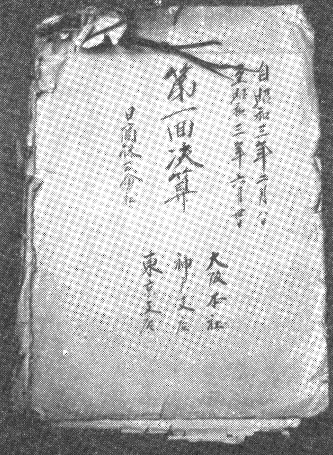 自昭和三年二月八日
至昭和三年六月卅日
第一回決算
日商株式会社
大阪本社
神戸支店
東京支店